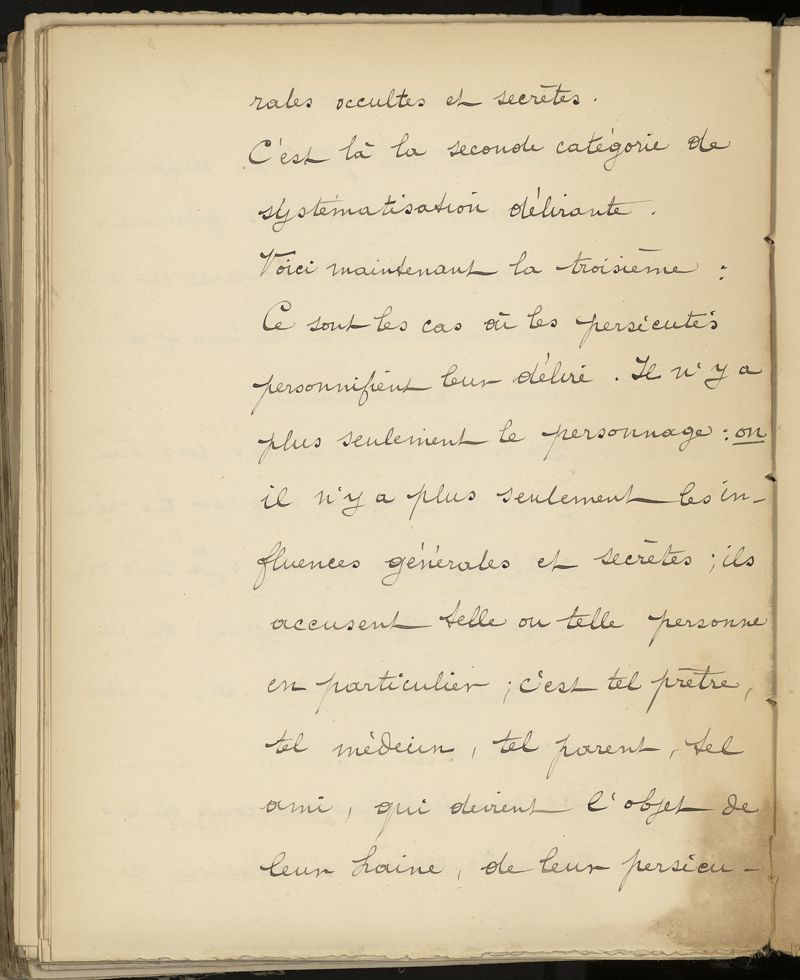 rales occultes et secrètes.
C'est là la seconde catégorie de
systématisation délirante.
Voici maintenant la troisième :
Ce sont les cas où les persécutés
personnifient leur délire. Il n'y a
plus seulement le personnage : on
il n'y a plus seulement les in-
fluences générales et secrètes ; ils
accusent telle ou telle personne
en particulier ; c'est tel prêtre,
tel médecin, tel parent, tel
ami, qui devient l'objet de
leur haine, de leur persécu-